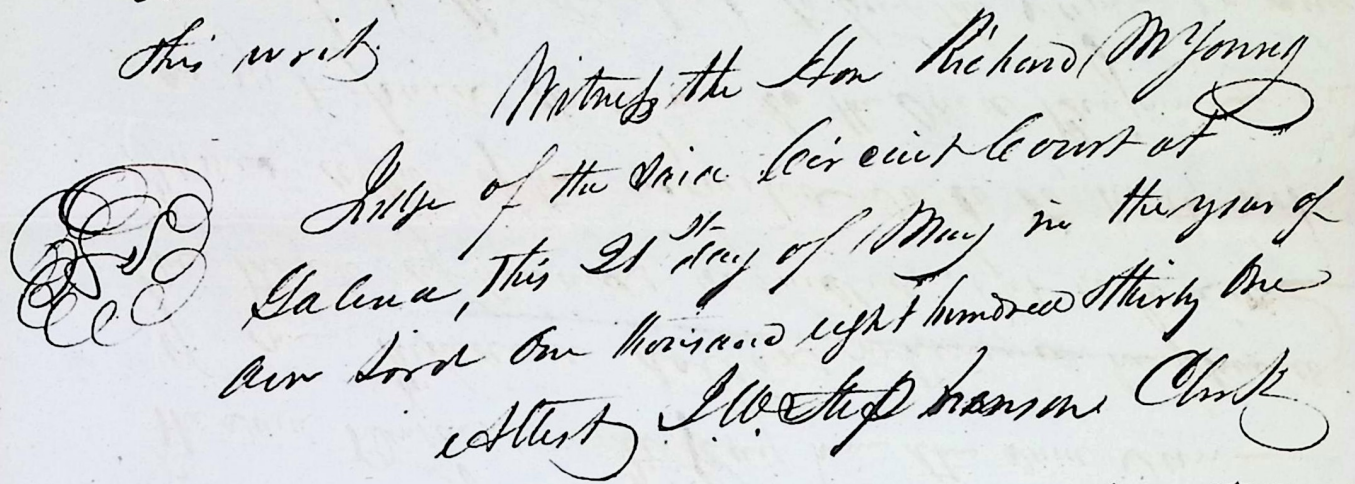 this writ.
Witness the Hon Richard M Young
Judge of the said Circuit Court at
Galena, this 21st day of May in the year of
our Lord One thousand eight hundred thirty One
Attest J. W. Stephenson Clerk